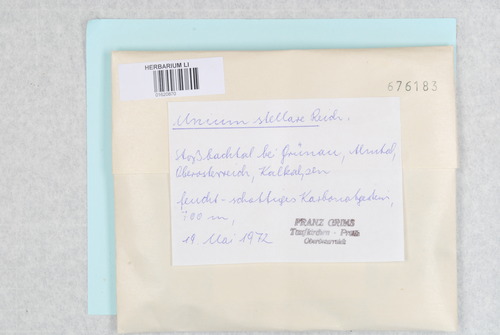 HERBARIUM LI
676183
Mnium stellare Reich.
bachtal bei Grünau, Almtal,
Oberösterreich, Kalkalpen
feucht-schattiges Karbonatgestein,
700 m,
19. Mai 1972
FRANZ GRIMS
Taufkirchen - Pram
Oberösterreich